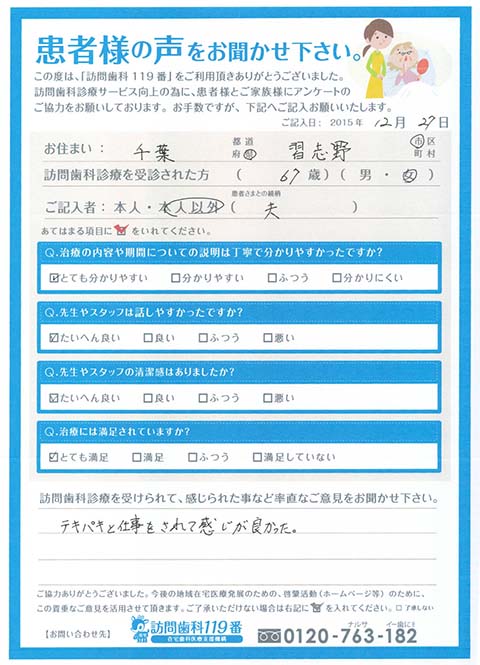 患者様の声をお聞かせ下さい。
この度は、「訪問歯科119番」をご利用頂きありがとうございました。
訪問歯科診療サービス向上の為に、患者様とご家族様にアンケートの
ご協力をお願いしております。お手数ですが、下記へご記入お願いいたします。
ご記入日：2015年 12月 27日
お住まい： 千葉 都道府県 習志野 市区町村
訪問歯科診療を受診された方 （ 67 歳）（ 男・女 ）
ご記入者：本人・本人以外（ 患者さまとの続柄 夫 ）
あてはまる項目に をいれてください。
Q.治療の内容や期間についての説明は丁寧で分かりやすかったですか?
☑とても分かりやすい □分かりやすい □ふつう □分かりにくい
Q.先生やスタッフは話しやすかったですか?
☑たいへん良い □良い □ふつう □悪い
Q.先生やスタッフの清潔感はありましたか?
☑たいへん良い □良い □ふつう □悪い
Q.治療には満足されていますか?
☑とても満足 □満足 □ふつう □満足していない
訪問歯科診療を受けられて、感じられた事など率直なご意見をお聞かせ下さい。
テキパキと仕事をされて感じが良かった。
ご協力ありがとうございました。今後の地域在宅医療発展のための、啓蒙活動（ホームページ等）のために、
この貴重なご意見を活用させて頂きます。ご了承いただけない場合は右記に を入れてください。□了承しない
【お問い合わせ先】 訪問歯科119番
在宅歯科医療支援機構
ナルサ イー歯にミ
0120-763-182